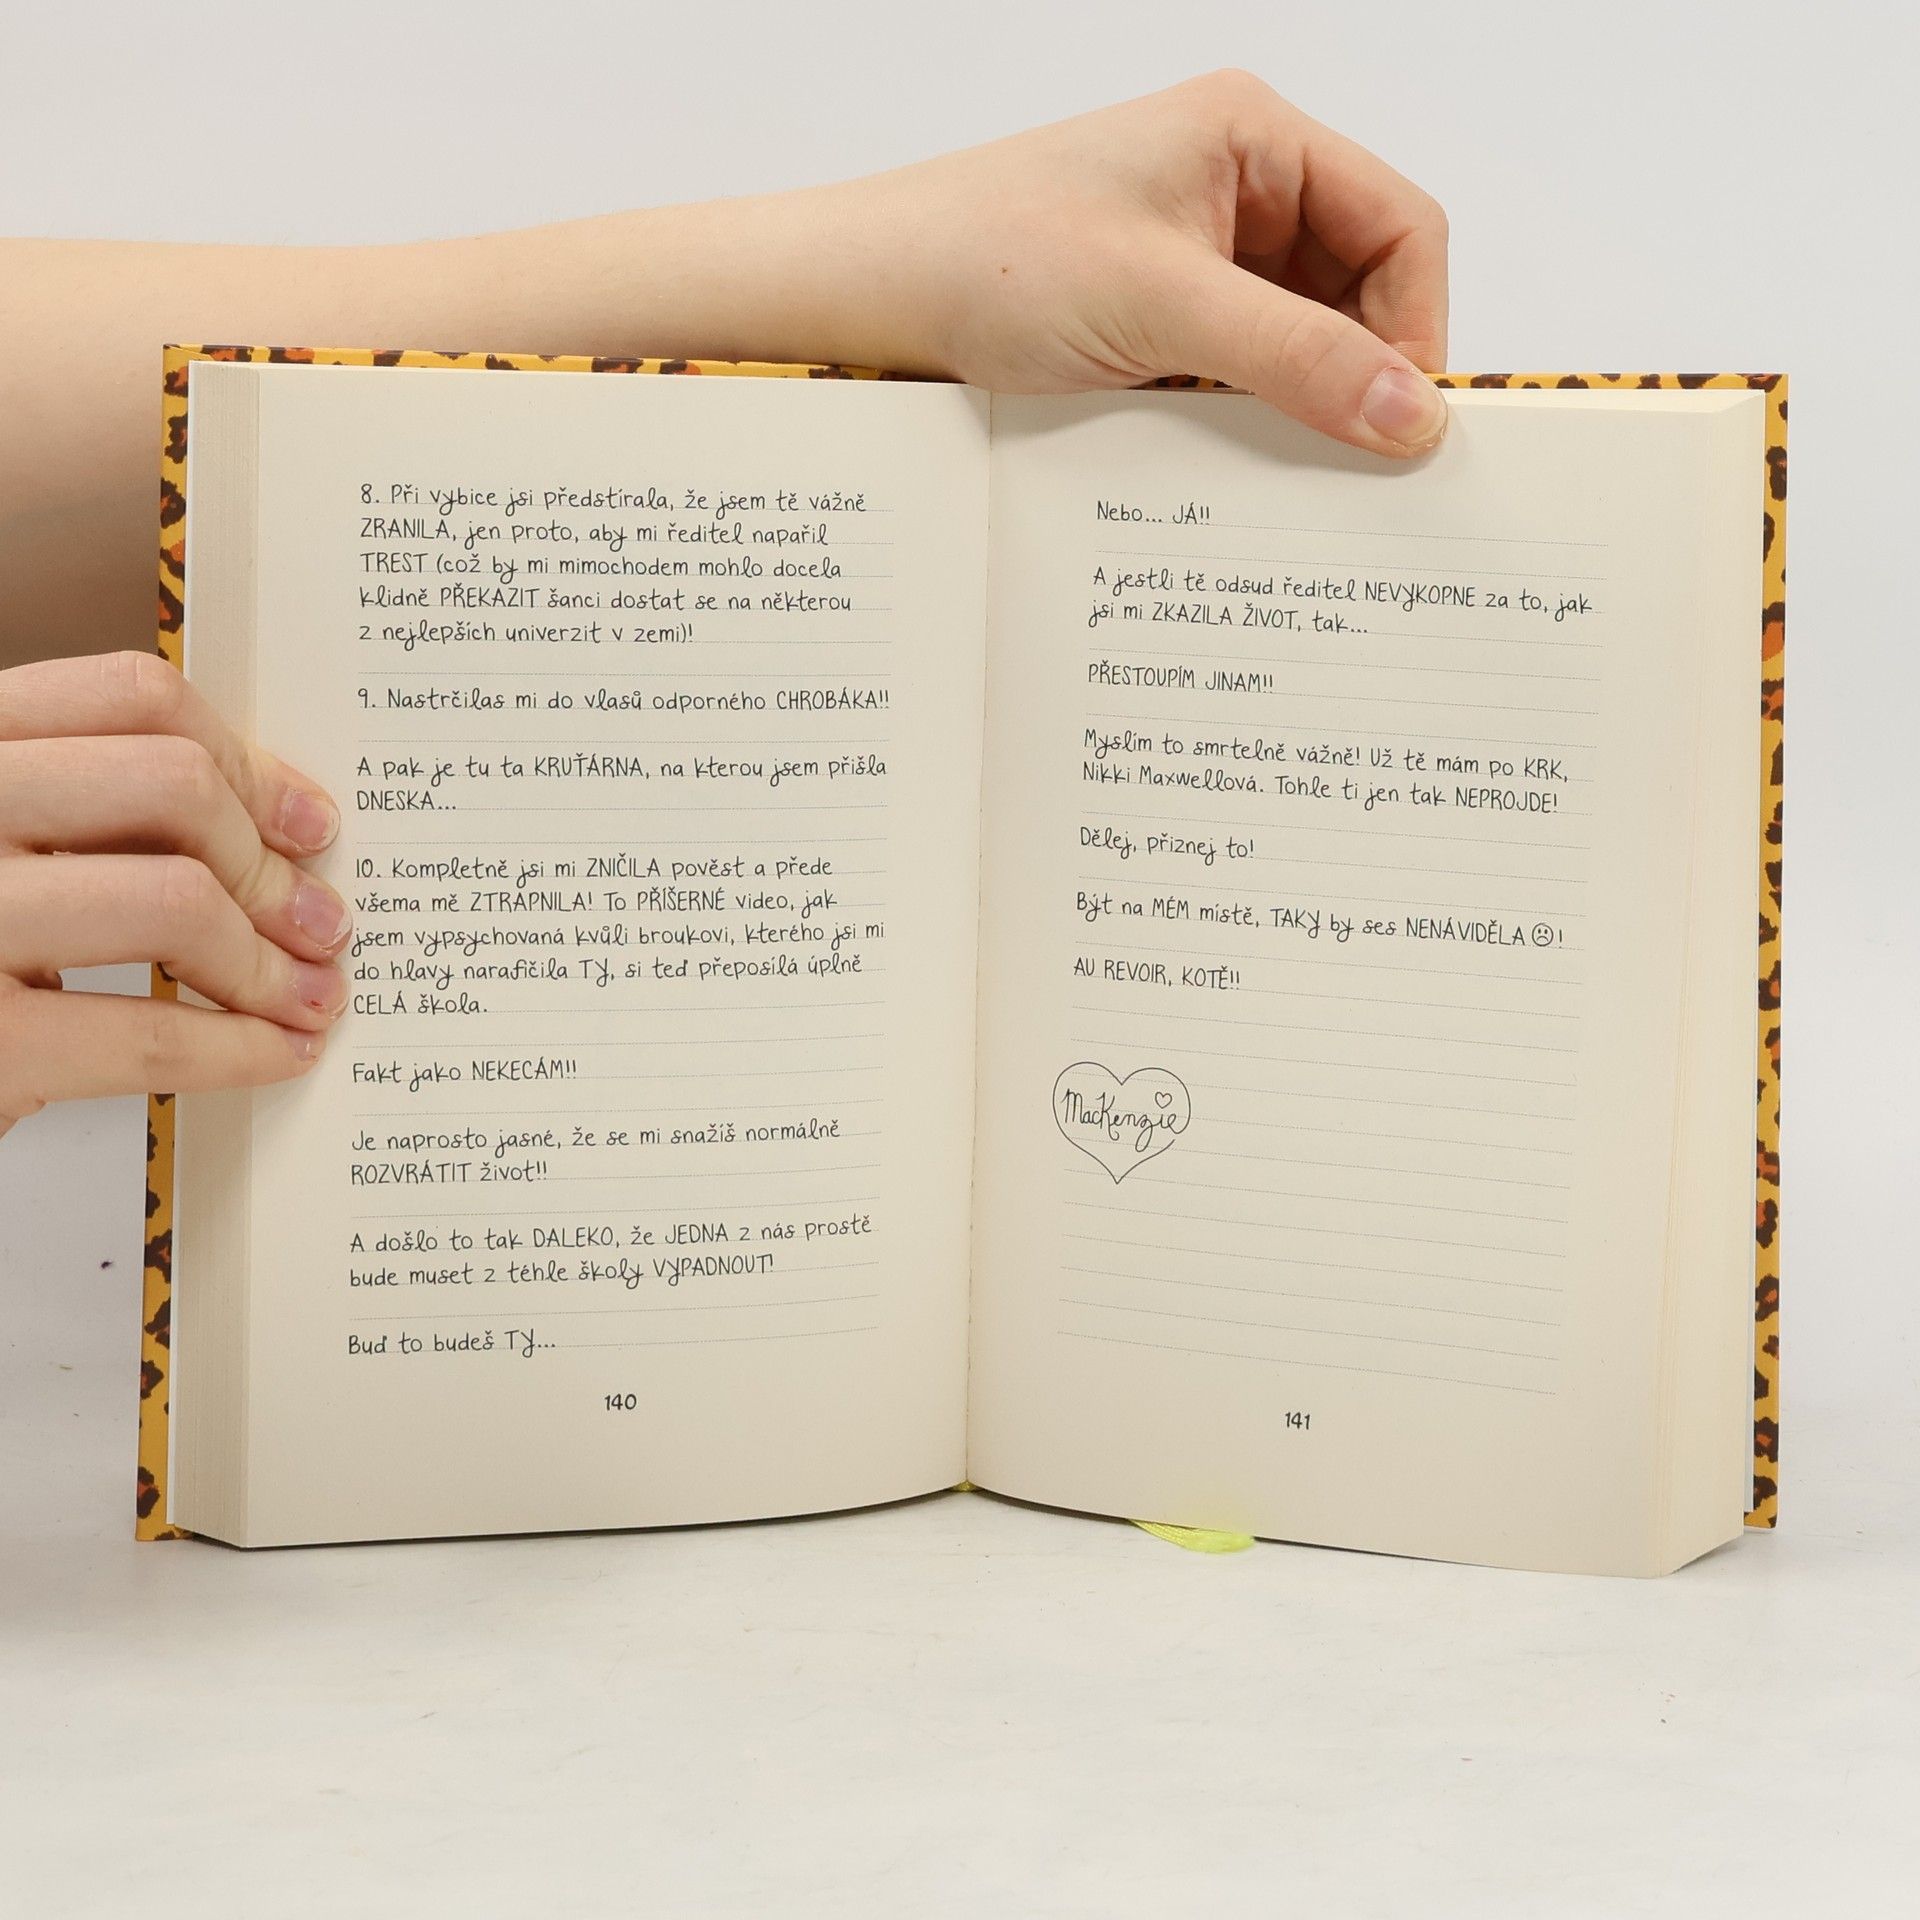 8. Při vybice jsi předstírala, že jsem tě vážně
ZRANILA, jen proto, aby mi ředitel napařil
TREST (což by mi mimochodem mohlo docela
klidně PŘEKAZIT šanci dostat se na některou
z nejlepších univerzit v zemi)!
9. Nastrčilas mi do vlasů odporného CHROBÁKA!!
A pak je tu ta KRUŤÁRNA, na kterou jsem přišla
DNESKA...
10. Kompletně jsi mi ZNIČILA pověst a přede
všema mě ZTRAPNILA! To PŘÍŠERNÉ video, jak
jsem vypsychovaná kvůli broukovi, kterého jsi mi
do hlavy narafičila TY, si teď přeposílá úplně
CELÁ škola.
Fakt jako NEKECÁM!!
Je naprosto jasné, že se mi snažíš normálně
ROZVRÁTIT život!!
A došlo to tak DALEKO, že JEDNA z nás prostě
bude muset z téhle školy VYPADNOUT!
Buď to budeš TY...
140
Nebo... JÁ!!
A jestli tě odsud ředitel NEVYKOPNE za to, jak
jsi mi ZKAZILA ŽIVOT, tak...
PŘESTOUPÍM JINAM!!
Myslím to smrtelně vážně! Už tě mám po KRK,
Nikki Maxwellová. Tohle ti jen tak NEPROJDE!
Dělej, přiznej to!
Být na MÉM místě, TAKY by ses NENÁVIDĚLA ☹!
AU REVOIR, KOTĚ!!
MacKenzie
141